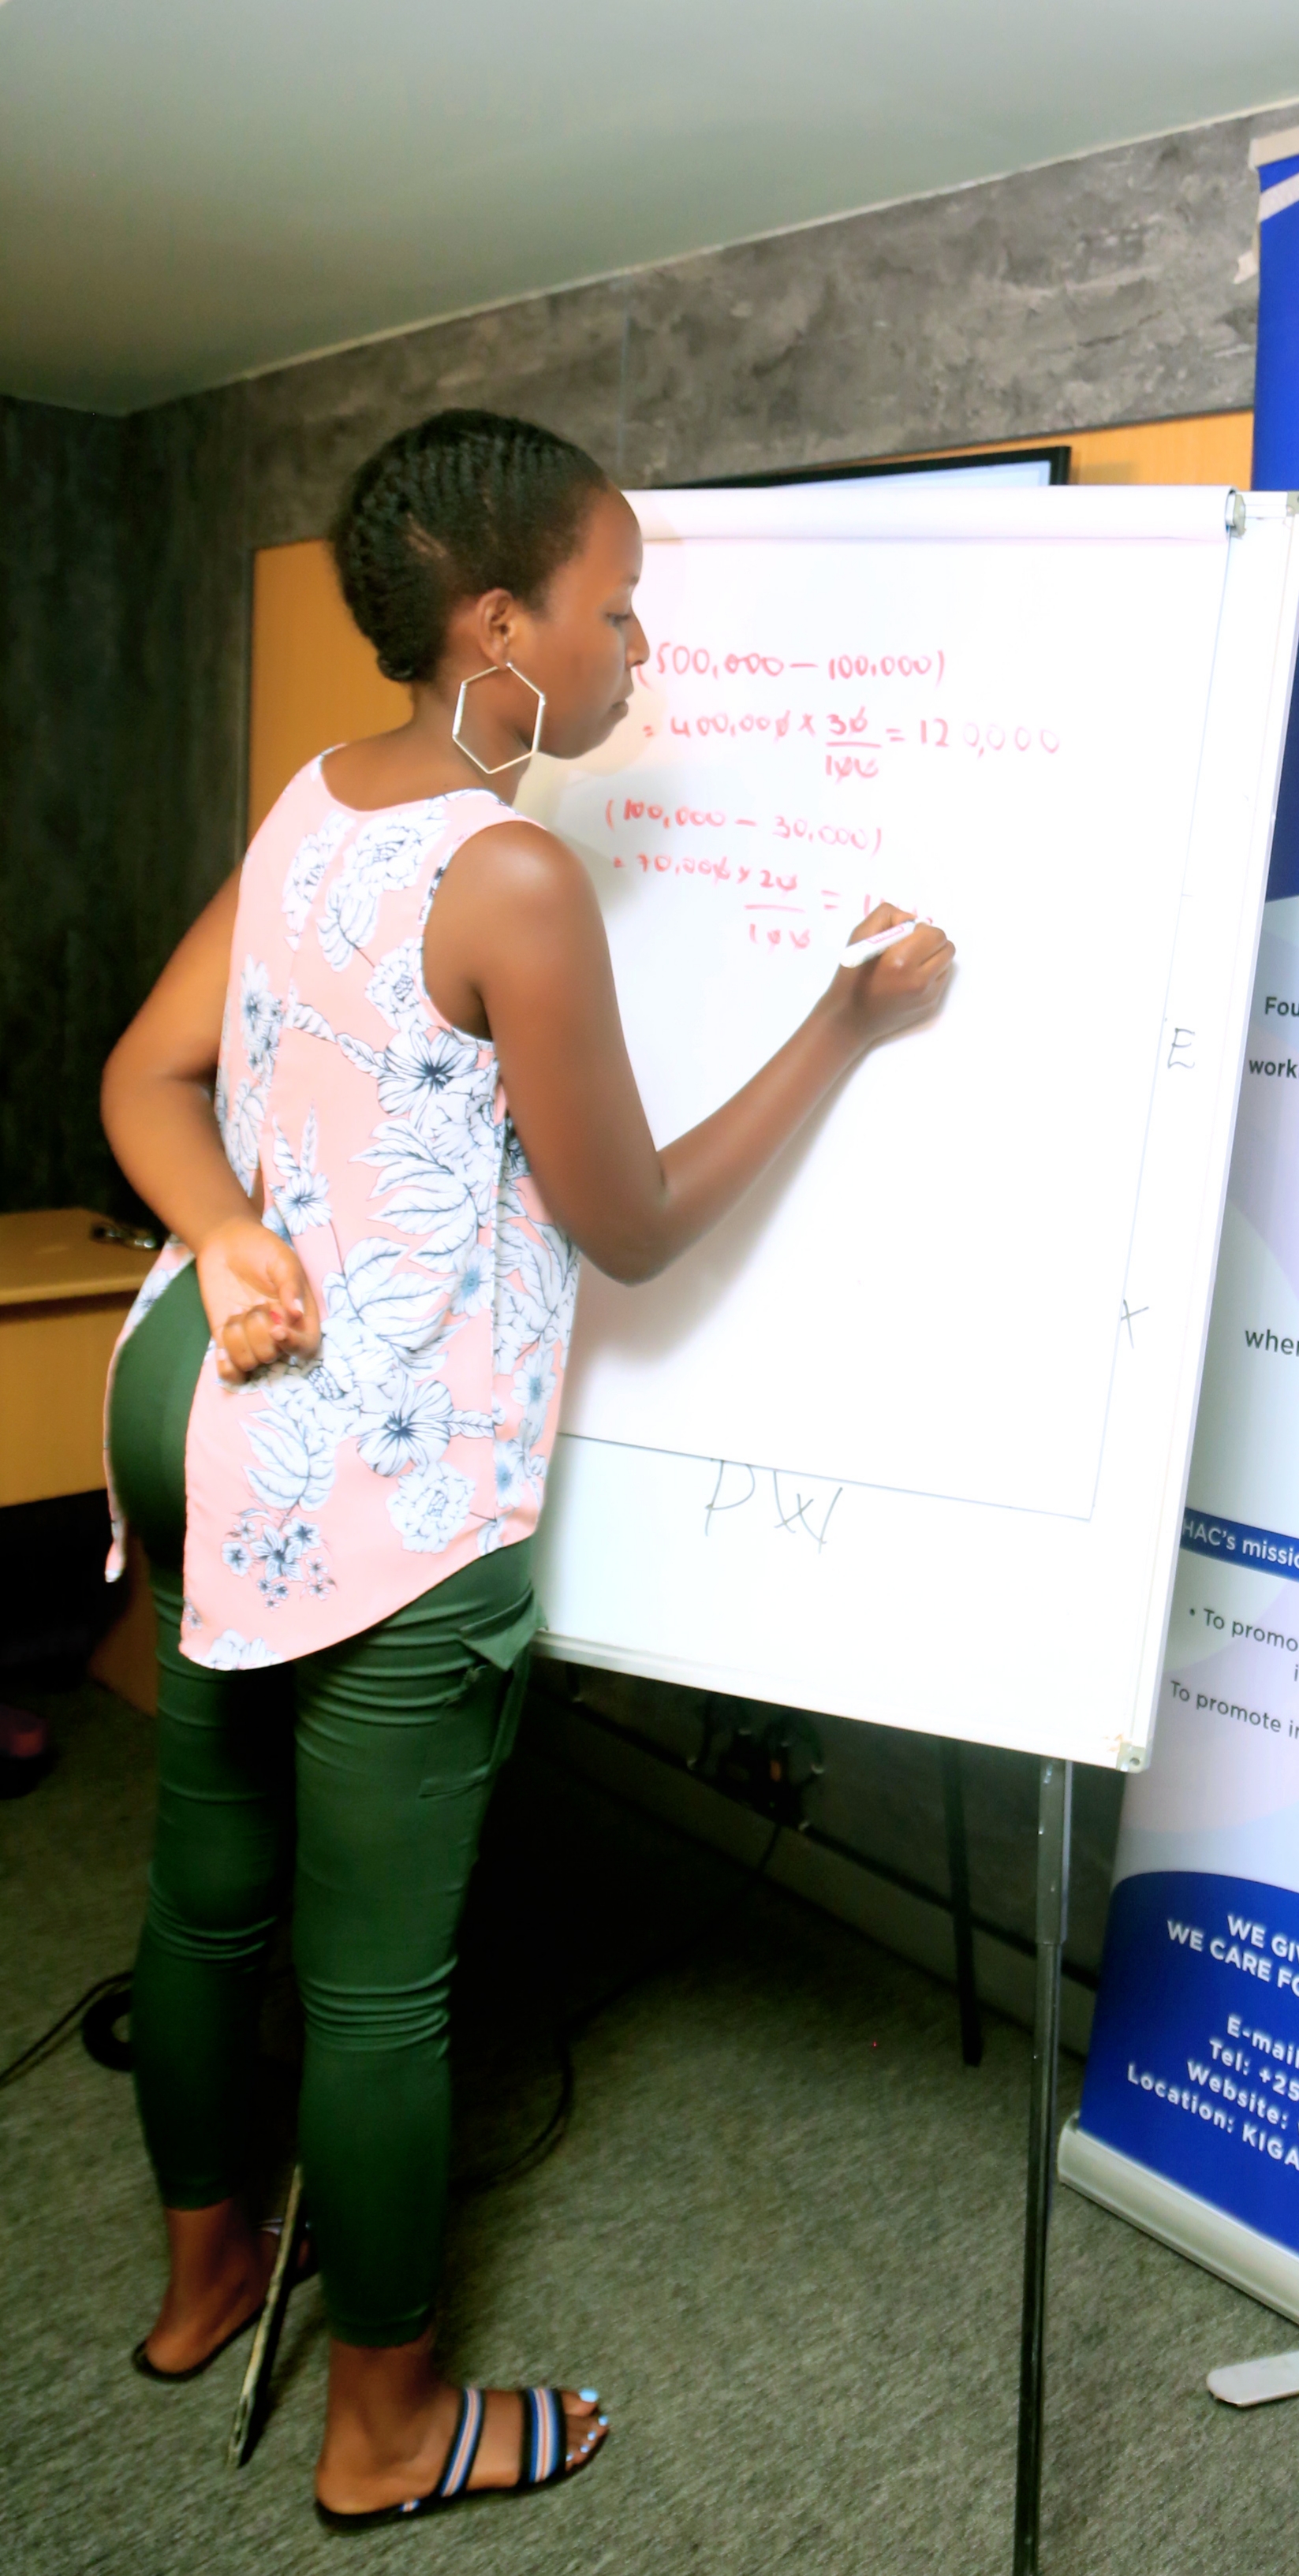 (500,000 – 100,000)
= 400,000 x 30/100 = 120,000
(100,000 – 30,000)
= 70,000 x 20/100 = 1
E
X
P W
Fou
work
when
HAC's missio
• To promo
i
To promote in
WE GI
WE CARE FO
E-mail
Tel: +25
Website:
Location: KIGA